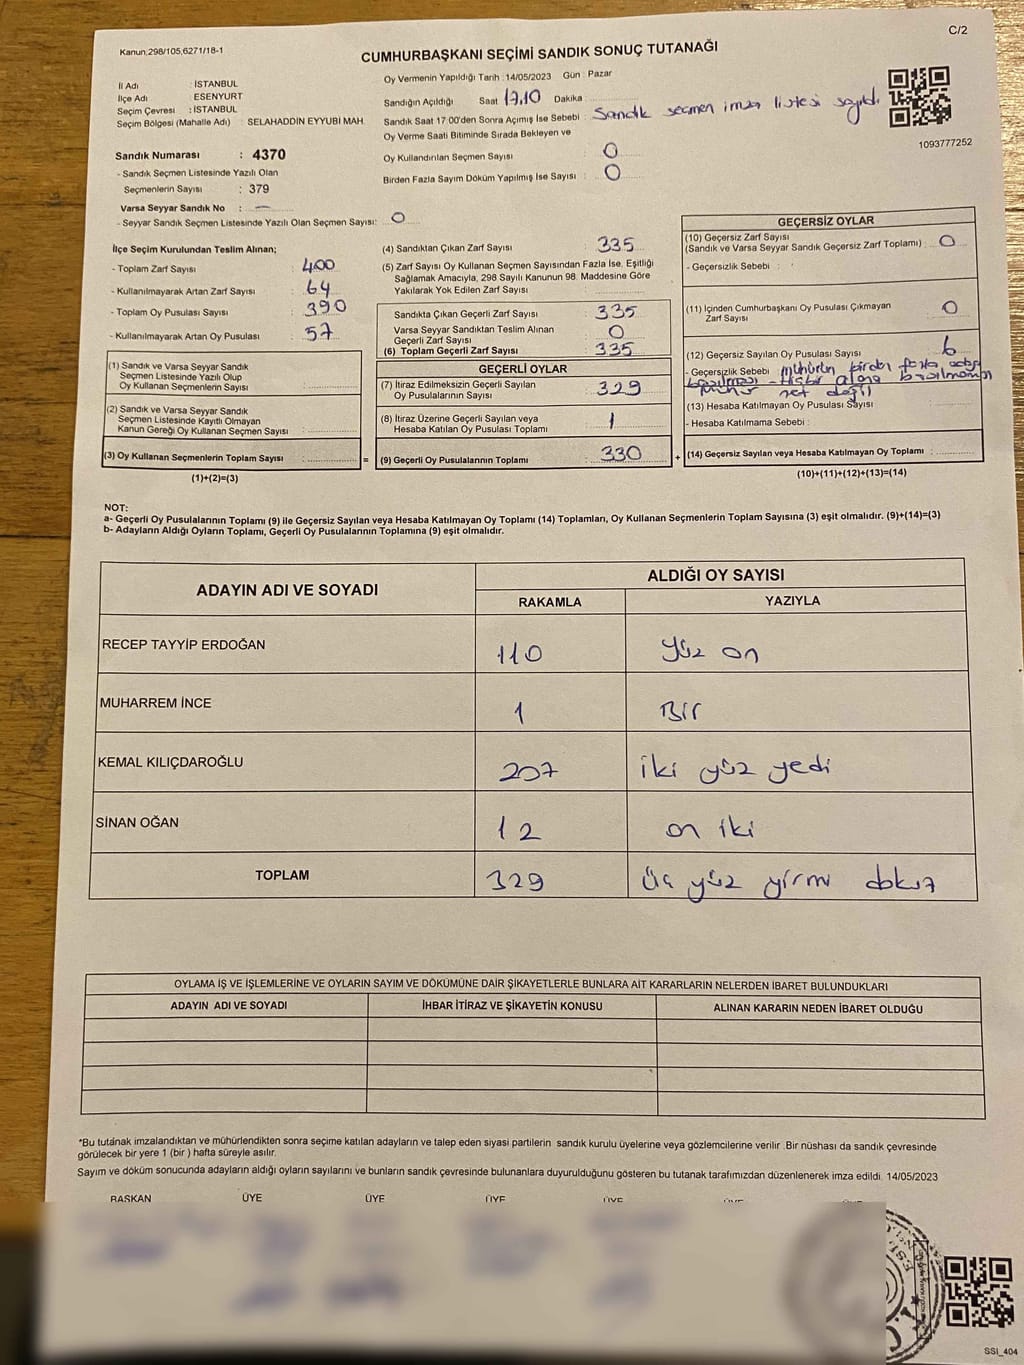 C/2
Kanun,298/105,6271/18-1
CUMHURBAŞKANI SEÇİMİ SANDIK SONUÇ TUTANAĞI
İl Adı : İSTANBUL
İlçe Adı : ESENYURT
Seçim Çevresi : İSTANBUL
Seçim Bölgesi (Mahalle Adı) : SELAHADDİN EYYUBİ MAH.
Sandık Numarası : 4370
- Sandık Seçmen Listesinde Yazılı Olan
Seçmenlerin Sayısı : 379
Varsa Seyyar Sandık No : —
- Seyyar Sandık Seçmen Listesinde Yazılı Olan Seçmen Sayısı: 0
Oy Vermenin Yapıldığı Tarih : 14/05/2023 Gün : Pazar
Sandığın Açıldığı Saat 17.10 Dakika
Sandık Saat 17:00'den Sonra Açımış İse Sebebi : Sandık seçmen imza listesi sayıldı
Oy Verme Saati Bitiminde Sırada Bekleyen ve
Oy Kullandırılan Seçmen Sayısı 0
Birden Fazla Sayım Döküm Yapılmış İse Sayısı : 0
1093777252
İlçe Seçim Kurulundan Teslim Alınan;
- Toplam Zarf Sayısı : 400
- Kullanılmayarak Artan Zarf Sayısı : 64
- Toplam Oy Pusulası Sayısı : 390
- Kullanılmayarak Artan Oy Pusulası : 57
(1) Sandık ve Varsa Seyyar Sandık
Seçmen Listesinde Yazılı Olup
Oy Kullanan Seçmenlerin Sayısı :
(2) Sandık ve Varsa Seyyar Sandık
Seçmen Listesinde Kayıtlı Olmayan
Kanun Gereği Oy Kullanan Seçmen Sayısı :
(3) Oy Kullanan Seçmenlerin Toplam Sayısı :
=
(1)+(2)=(3)
(4) Sandıktan Çıkan Zarf Sayısı : 335
(5) Zarf Sayısı Oy Kullanan Seçmen Sayısından Fazla İse, Eşitliği
Sağlamak Amacıyla, 298 Sayılı Kanunun 98. Maddesine Göre
Yakılarak Yok Edilen Zarf Sayısı :
Sandıkta Çıkan Geçerli Zarf Sayısı : 335
Varsa Seyyar Sandıktan Teslim Alınan
Geçerli Zarf Sayısı : 0
(6) Toplam Geçerli Zarf Sayısı : 335
GEÇERLİ OYLAR
(7) İtiraz Edilmeksizin Geçerli Sayılan
Oy Pusulalarının Sayısı : 329
(8) İtiraz Üzerine Geçerli Sayılan veya
Hesaba Katılan Oy Pusulası Toplamı : 1
(9) Geçerli Oy Pusulalarının Toplamı : 330
+
GEÇERSİZ OYLAR
(10) Geçersiz Zarf Sayısı
(Sandık ve Varsa Seyyar Sandık Geçersiz Zarf Toplamı) : 0
- Geçersizlik Sebebi :
(11) İçinden Cumhurbaşkanı Oy Pusulası Çıkmayan
Zarf Sayısı : 0
(12) Geçersiz Sayılan Oy Pusulası Sayısı : 6
- Geçersizlik Sebebi : mühürün birden fazla
basılması - Hiçbir alana basılmaması
mühür net değil
(13) Hesaba Katılmayan Oy Pusulası Sayısı :
- Hesaba Katılmama Sebebi :
(14) Geçersiz Sayılan veya Hesaba Katılmayan Oy Toplamı :
(10)+(11)+(12)+(13)=(14)
NOT:
a- Geçerli Oy Pusulalarının Toplamı (9) ile Geçersiz Sayılan veya Hesaba Katılmayan Oy Toplamı (14) Toplamları, Oy Kullanan Seçmenlerin Toplam Sayısına (3) eşit olmalıdır. (9)+(14)=(3)
b- Adayların Aldığı Oyların Toplamı, Geçerli Oy Pusulalarının Toplamına (9) eşit olmalıdır.
ADAYIN ADI VE SOYADI
ALDIĞI OY SAYISI
RAKAMLA YAZIYLA
RECEP TAYYİP ERDOĞAN 110 Yüz on
MUHARREM İNCE 1 Bir
KEMAL KILIÇDAROĞLU 207 iki yüz yedi
SİNAN OĞAN 12 on iki
TOPLAM 329 üç yüz yirmi dokuz
OYLAMA İŞ VE İŞLEMLERİNE VE OYLARIN SAYIM VE DÖKÜMÜNE DAİR ŞİKAYETLERLE BUNLARA AİT KARARLARIN NELERDEN İBARET BULUNDUKLARI
ADAYIN ADI VE SOYADI İHBAR İTİRAZ VE ŞİKAYETİN KONUSU ALINAN KARARIN NEDEN İBARET OLDUĞU
*Bu tutanak imzalandıktan ve mühürlendikten sonra seçime katılan adayların ve talep eden siyasi partilerin sandık kurulu üyelerine veya gözlemcilerine verilir .Bir nüshası da sandık çevresinde
görülecek bir yere 1 (bir ) hafta süreyle asılır.
Sayım ve döküm sonucunda adayların aldığı oyların sayılarını ve bunların sandık çevresinde bulunanlara duyurulduğunu gösteren bu tutanak tarafımızdan düzenlenerek imza edildi. 14/05/2023
BAŞKAN ÜYE ÜYE ÜYE ÜYE
SSI_404